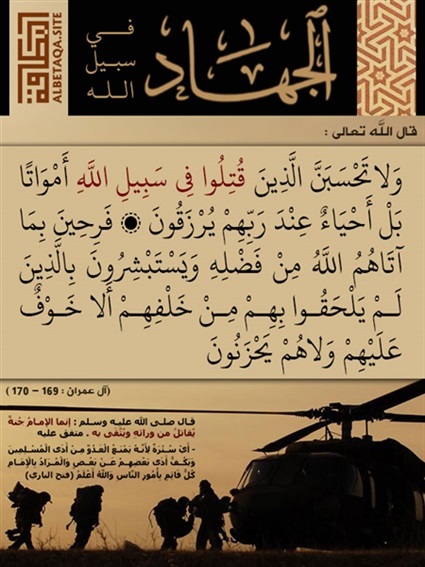 الجهاد
في
سبيل
الله
ALBETAQA.SITE
قال الله تعالى :
وَلَا تَحْسَبَنَّ الَّذِينَ قُتِلُوا فِي سَبِيلِ اللَّهِ أَمْوَاتًا
بَلْ أَحْيَاءٌ عِندَ رَبِّهِمْ يُرْزَقُونَ ۝ فَرِحِينَ بِمَا
آتَاهُمُ اللَّهُ مِنْ فَضْلِهِ وَيَسْتَبْشِرُونَ بِالَّذِينَ
لَمْ يَلْحَقُوا بِهِمْ مِنْ خَلْفِهِمْ أَلَّا خَوْفٌ
عَلَيْهِمْ وَلَاهُمْ يَحْزَنُونَ
(آل عمران : 169 – 170)
قال صلى الله عليه وسلم : إنما الإمامُ جُنةٌ
يُقاتلُ من ورائهِ ويُتقى به . متفق عليه
- أَيْ سُتْرَةٌ لِأَنَّهُ يَمْنَعُ الْعَدُوَّ مِنْ أَذَى الْمُسْلِمِينَ
وَيَكُفُّ أَذَى بَعْضِهِمْ عَنْ بَعْضٍ وَالْمُرَادُ بِالْإِمَامِ
كُلُّ قَائِمٍ بِأُمُورِ النَّاسِ وَاللَّهُ أَعْلَمُ (فتح الباري)